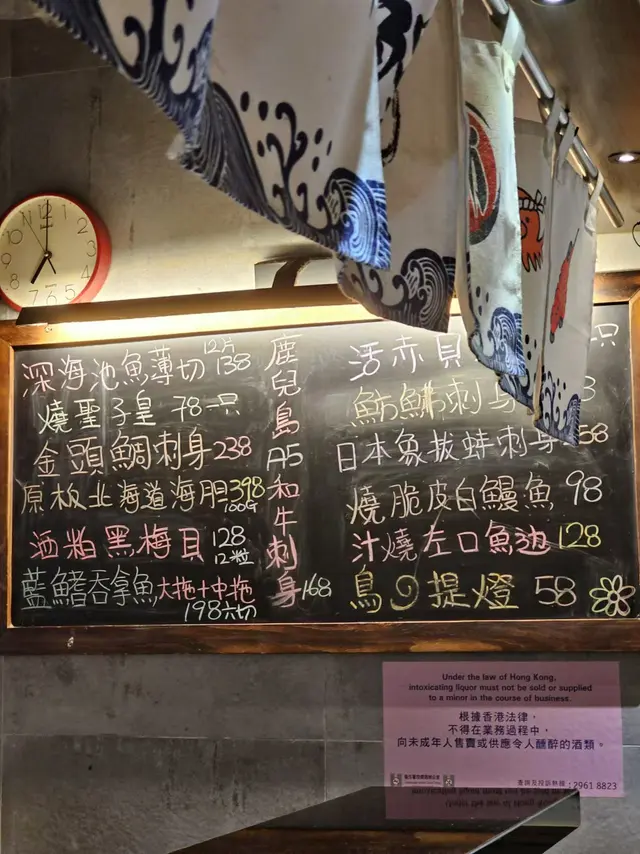 12 1 2 3 5 6 7 8 9 10 11
深海池魚薄切 12片 138
燒聖子皇 78一只
金頭鯛刺身238
原板北海道海胆398
100G
酒粕黑梅貝 128
12粒
藍鰭吞拿魚大拖十中拖
198六切
鹿兒島A5和牛刺身168
活赤貝 一只
魴鮄刺身
日本象拔蚌刺身 58
燒脆皮白鰻魚 98
汁燒左口魚边 128
鳥の提燈 58
Under the law of Hong Kong,
intoxicating liquor must not be sold or supplied
to a minor in the course of business.
根據香港法律，
不得在業務過程中，
向未成年人售賣或供應令人醺醉的酒類。
查詢及投訴熱線：2961 8823